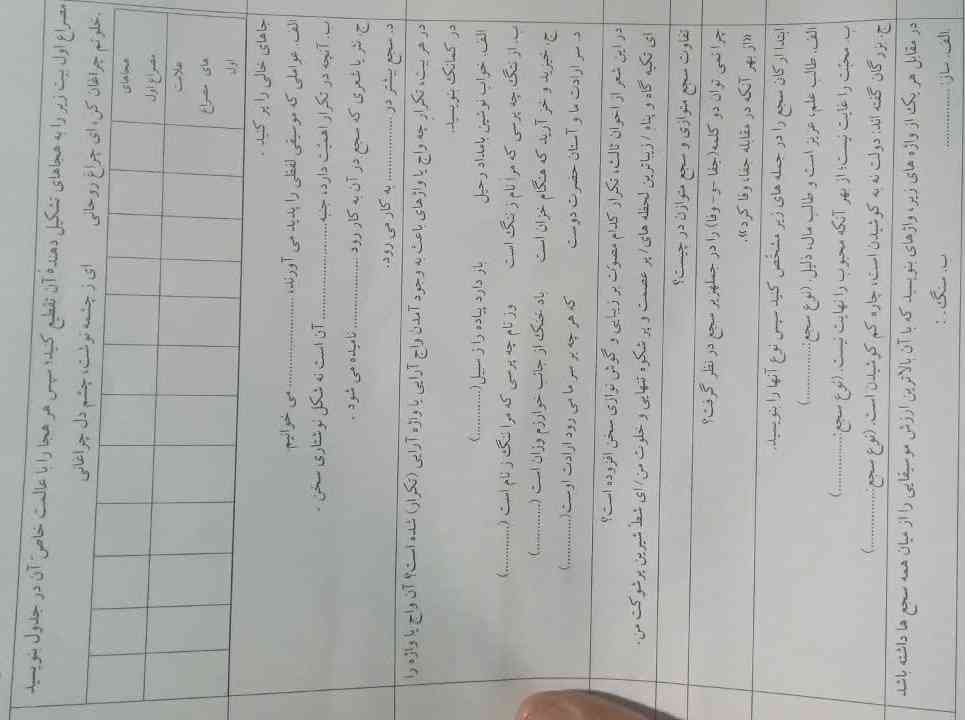 مصراع اول بیت زیر را به هجاهای تشکیل دهندهٔ آن تقطیع کنید؛ سپس هر هجا را با علامت خاص آن در جدول بنویسید
خلوتم چراغان کن، ای چراغ روحانی    ای ز چشمه نوشت، چشم دل چراغانی
هجاهای مصراع اول
علامت های مصراع اول
جاهای خالی را پر کنید.
الف. عواملی که موسیقی لفظی را پدید می آورند، ............... می خوانیم.
ب. آنچه در تکرار اهمیت دارد، جنبه ............... آن است نه شکل نوشتاری سخن.
ج. نثر یا شعری که سجع در آن به کار رود ............... نامیده می شود.
د. سجع بیشتر در ............... به کار می رود.
در هر بیت، تکرار چه واج یا واژهای باعث به وجود آمدن واج آرایی یا واژه آرایی (تکرار) شده است؟ آن واج یا واژه را
در کمانک بنویسید.
الف. خواب نوشین بامداد رحیل    باز دارد پیاده را از سبیل(............)
ب. از ننگ چه پرسی که مرا نام ز ننگ است    وز نام چه پرسی که مرا ننگ ز نام است (............)
ج. خیزید و خز آرید که هنگام خزان است    باد خنک از جانب خوارزم وزان است (............)
د. سر ارادت ما و آستان حضرت دوست    که هر چه بر سر ما می رود ارادت اوست(............)
در این شعر از اخوان ثالث، تکرار کدام مصوّت بر زیبایی و گوش نوازی سخن افزوده است؟
ای تکیه گاه و پناه / زیباترین لحظه های / پر عصمت و پر شکوه تنهایی و خلوت من/ ای شطّ شیرین پرشوکت من.
تفاوت سجع متوازی و سجع متوازن در چیست؟
چرا نمی توان دو کلمه(جفا -و- وفا) را در جملهزیر سجع در نظر گرفت؟
«از بهر آنکه در مقابله جفا، وفا کرد».
ابتدا ارکان سجع را در جمله های زیر مشخّص کنید سپس نوع آنها را بنویسید.
الف. طالب علم، عزیز است و طالب مال، ذلیل. (نوع سجع:............)
ب. محبّت را غایت نیست؛ از بهر آنکه محبوب را نهایت نیست. (نوع سجع:............)
ج. بزرگان گفته اند: دولت نه به کوشیدن است، چاره کم کوشیدن است. (نوع سجع:............)
در مقابل هر یک از واژه های زیر، واژهای بنویسید که با آن بالاترین ارزش موسیقایی را از میان همه سجع ها داشته باشد
الف. ساز: ...............    ب. سنگ: